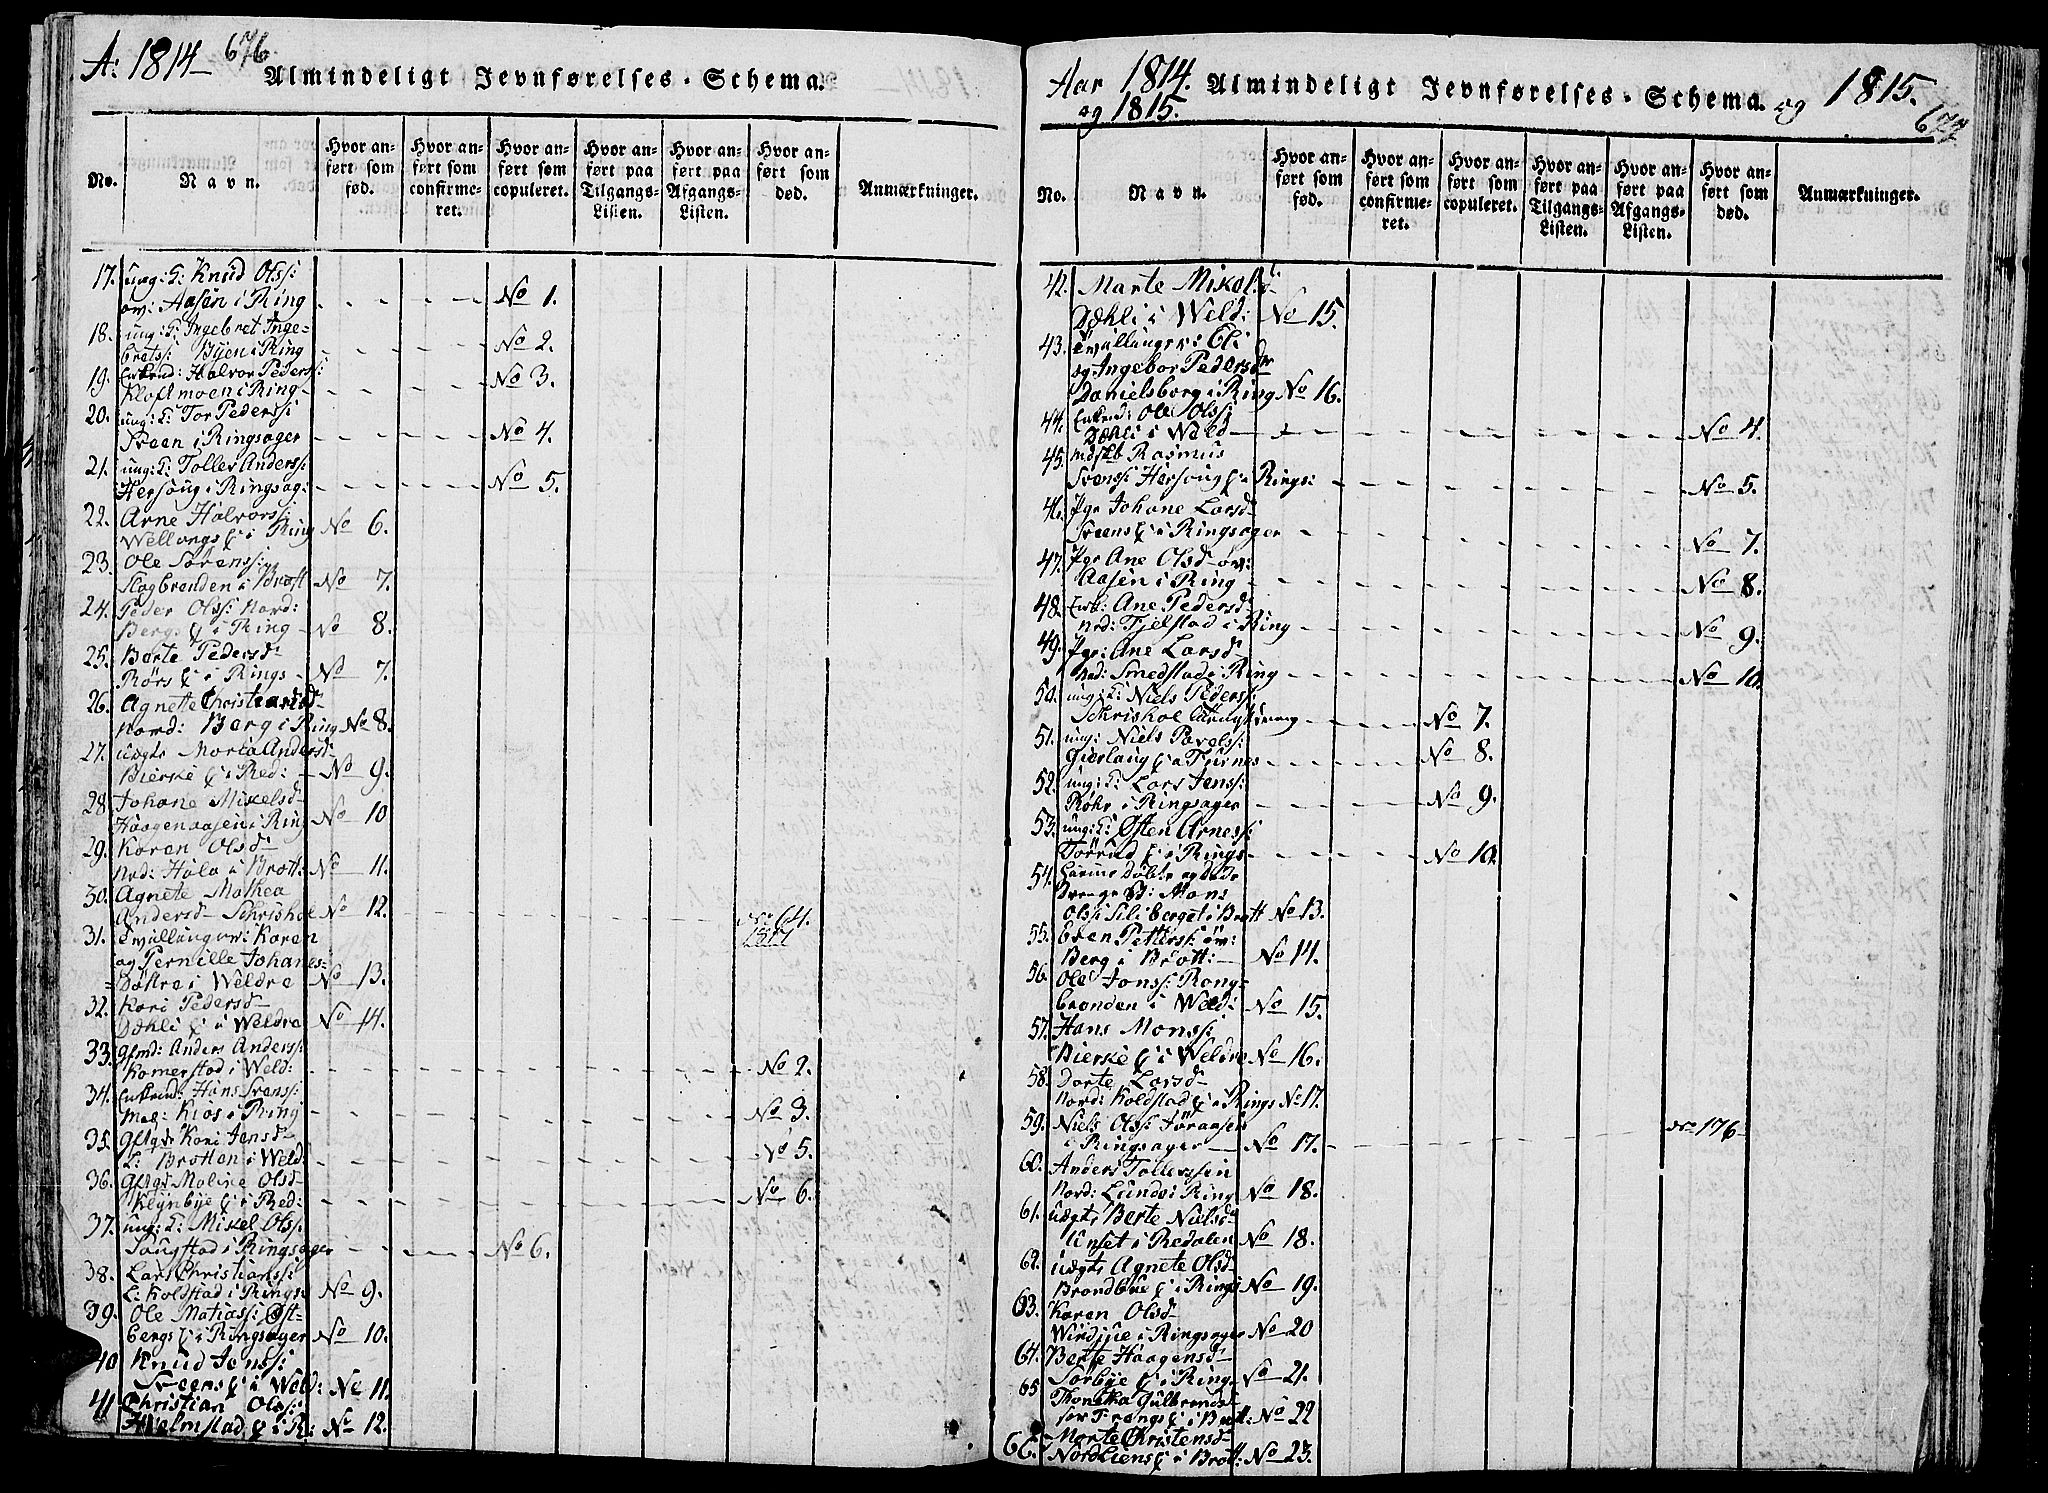 A: 1814 – 676
Almindeligt Jevnførelses-Schema.
No.
Navn.
Hvor anført som fød.
Hvor anført som confirmeret.
Hvor anført som copuleret.
Hvor anført paa Tilgangs-Listen.
Hvor anført paa Afgangs-Listen.
Hvor anført som død.
Anmærkninger.
17. ung: K: Knud Olss:
öv: Aasen i Ring - - - - No 1.
18. ung: K: Ingebret Inge=
brets: Byen i Ring - - - - No 2.
19. Enkmd: Halvor Peders:
Kloftmoen i Ring - - - - No 3.
20. ung: K: Tor Peders:
Sveen i Ringsager - - - - No 4.
21. ung: K: Tollev Anders:
Hersoug i Ringsag: - - - - No 5.
22. Arne Halvors:
i Ring No 6.
23. Ole Sörens:
Slagbrenden i Brott No 7.
24. Peder Olss: Nord:
Bergs E i Ring - No 8.
25. Berte Pedersd
Rörs E i Rings - No 7.
26. Agnette Christiansd
Nord: Berg i Ring No 8.
27. uægte Maria Andersd
Bierke E i Red: - No 9.
28. Johane Mikelsd
Haagenaasen i Ring No 10
29. Karen Olsd
Nrd: Hala i Brott: No 11.
30. Agnete Mathea
Andersd Schrishoe No 12. - - - - No 64.
31. Tvillinger: Karen
og Pernille Johanes=
i Weldre No 13.
32. Kari Pedersd
Dæhli E i Weldre No 14.
33. Gfmd: Anders Anders:
Komerstad i Weld: - - - - No 2.
34. Enkmd: Hans Svens:
Kios i Ring - - - - No 3.
35. Gftgd Kari Jensd
L: Brotten i Weld: - - - - No 5.
36. Gftgd Maline Olsd
Klynbye E i Red: - - - - No 6.
37. ung: K: Mikel Olss:
Saugstad i Ringsager - - - No 6.
38. Lars Christianss:
L: Koldstad i Rings: No 9.
39. Ole Matiass: Öst=
bergs E i Ringsager No 10.
40 Knud Jenss:
Sveens E i Weld: No 11.
41 Christian Olss:
Hielmstad E i R: No 12.
Aar 1814. og 1815.
Almindeligt Jevnførelses-Schema. og 1815.
677
No.
Navn.
Hvor anført som fød.
Hvor anført som confirmeret.
Hvor anført som copuleret.
Hvor anført paa Tilgangs-Listen.
Hvor anført paa Afgangs-Listen.
Hvor anført som død.
Anmærkninger.
42. Marte Mikelsd
Dæhli i Weld: - No 15.
43. Tvillinger: Eli
og Ingebor Pedersdr
Danielsborg i Ring No 16.
44. Enkmd: Ole Olss:
Dæhli i Weld - - - - No 4.
45. Rasmus
Svenss: Hersoug E i Rings: - - - - No 5.
46. Pge Johane Larsd
Sveens E i Ringsager - - - - No 7.
47. Pge Ane Olsd öv:
Aasen i Ring - - - - No 8.
48. Enk: Ane Pedersd
Nrd: Fjelstad i Ring - - - - No 9.
49. Pge: Ane Larsd
Ned: Smedstad i Ring - - - - No 10.
50. ung: K: Niels Peders:
Schrishoe - - - - No 7.
51. ung: Niels Pavels:
E i Furnes - - - - No 8.
52. ung: K: Lars Jens:
Röhr i Ringsager - - - - No 9.
53. ung: K: Östen Arnes:
Törrud E i Rings - - - - No 10.
54. Hiemedöbte og Döde
Drenge Bd: Mons
Olss: Siliberget i Brott No 13.
55. Even Petters: öv:
Berg i Brott: - No 14.
56. Ole Jonss: Rong=
branden i Weld: No 15.
57. Hans Monss:
Bierke E i Weldre No 16.
58. Dorte Larsd
Nord: Koldstad E i Rings No 17.
59. Niels Olss: Föraasen
i Ringsager - No 17. - - - - No 176
60. Anders Tollerssen
Nord: Lunde i Ring No 18.
61. uægte Berte Nielsd
Unset i Redalen No 18.
62. uægte Agnete Olsd
Brandbue E i Rings No 19.
63. Karen Olsd
i Ringsager No 20
64. Berte Haagensd
Sörbye E i Ring No 21.
65 Thonetha Gulbrends
i Brott: No 22
66. Marte Christensd
Nordliens E i Brott: No 23.